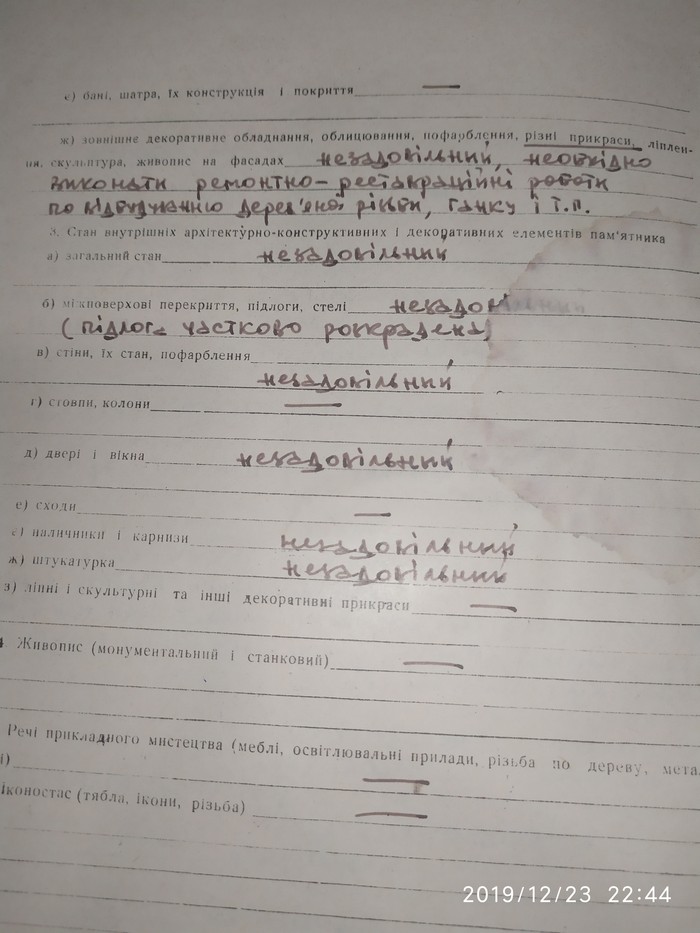 є) бані, шатра, їх конструкція і покриття —
ж) зовнішнє декоративне обладнання, облицювання, пофарблення, різні прикраси, ліплен-
ня, скульптура, живопис на фасадах незадовільний, необхідно
виконати ремонтно-реставраційні роботи
по відбудуванню дерев'яної різьби, ганку і т.п.
3. Стан внутрішніх архітектурно-конструктивних і декоративних елементів пам'ятника
а) загальний стан незадовільний
б) міжповерхові перекриття, підлоги, стелі незадовільний
(підлога частково розкрадена)
в) стіни, їх стан, пофарблення
незадовільний
г) стовпи, колони —
д) двері і вікна незадовільний
е) сходи —
є) наличники і карнизи незадовільний
ж) штукатурка незадовільний
з) ліпні і скульптурні та інші декоративні прикраси —
4 Живопис (монументальний і станковий) —
Речі прикладного мистецтва (меблі, освітлювальні прилади, різьба по дереву, мета
і) —
іконостас (тябла, ікони, різьба) —
2019/12/23 22:44